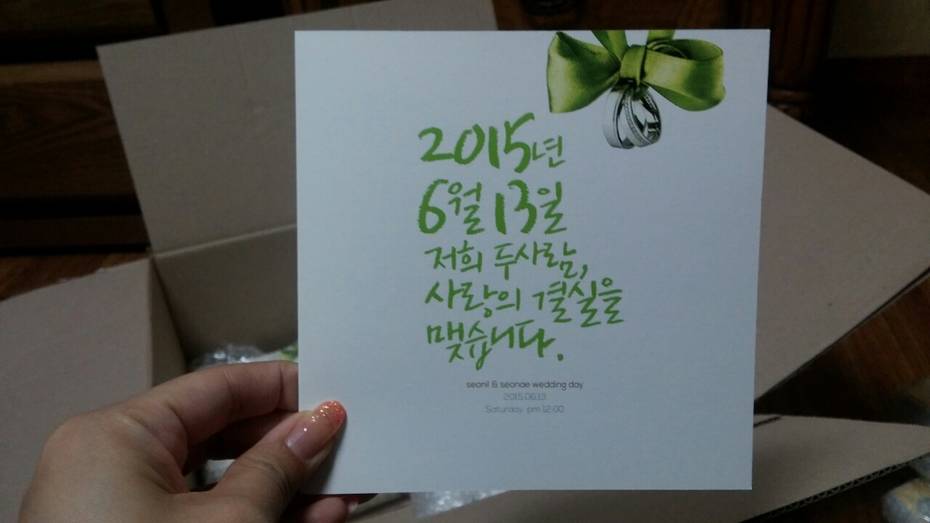 2015년
6월 13일
저희 두사람,
사랑의 결실을
맺습니다.
seonil & seonae wedding day
2015.06.13
Saturday pm 12:00